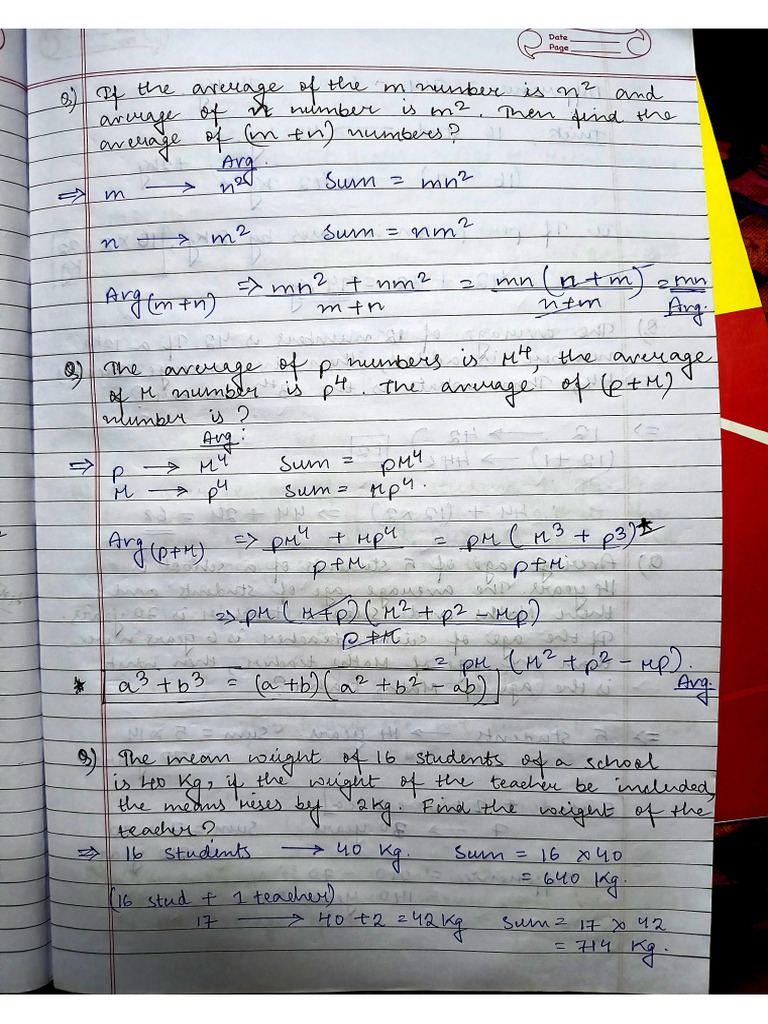 Date
Page
Q) If the average of the m number is n² and
average of n number is m². Then find the
average of (m+n) numbers?
Avg.
⇒ m → n² Sum = mn²
n → m² Sum = nm²
Avg(m+n) ⇒ mn² + nm² / m+n = mn(n+m) / n+m = mn
Avg.
Q) The average of p numbers is x⁴, the average
of x number is p⁴. The average of (p+x)
number is?
Avg:
⇒ p → x⁴ Sum = px⁴
x → p⁴ Sum = xp⁴.
Avg(p+x) ⇒ px⁴ + xp⁴ / p+x = px(x³ + p³)* / p+x
⇒ px(x+p)(x²+p²-xp) / p+x
= px (x²+p²-xp).
Avg.
* a³+b³ = (a+b)(a²+b²-ab)
Q) The mean weight of 16 students of a school
is 40 Kg, if the weight of the teacher be included,
the means rises by 2kg. Find the weight of the
teacher?
⇒ 16 students → 40 Kg. Sum = 16 × 40
= 640 Kg.
(16 stud + 1 teacher)
17 → 40+2 = 42 Kg Sum = 17 × 42
= 714 Kg.